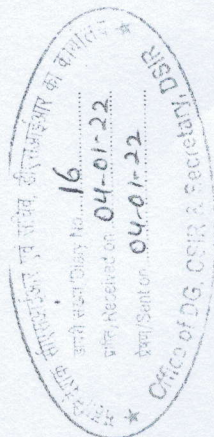 महानिदेशक सीएसआईआर एवं सचिव, डीएसआईआर का कार्यालय
डायरी संख्या/Diary No. 16
प्राप्ति/Received on 04-01-22
प्रेषण/Sent on 04-01-22
* Office of DG, CSIR & Secretary, DSIR *